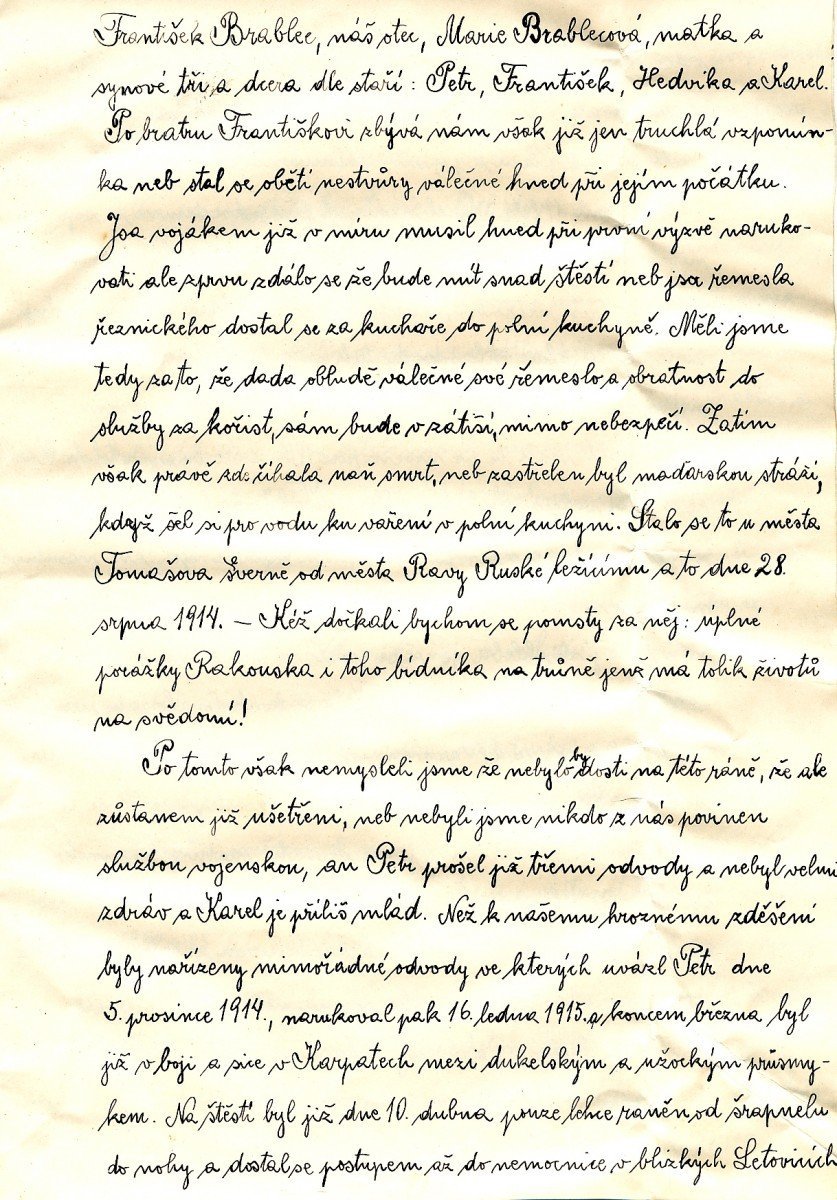 František Brablec, náš otec, Marie Brablecová, matka a
synové tři a dcera dle staří: Petr, František, Hedvika a Karel.
Po bratru Františkovi zbývá nám však již jen truchlá vzpomín-
ka neb stal se obětí nestvůry válečné hned při jejím počátku.
Jsa vojákem již v míru musil hned při první výzvě naruko-
vati ale zprvu zdálo se že bude mít snad štěstí neb jsa řemesla
řeznického dostal se za kuchaře do polní kuchyně. Měli jsme
tedy za to, že dada obludě válečné své řemeslo a obratnost do
služby za kořist, sám bude v zátiší, mimo nebezpečí. Zatím
však právě zde číhala naň smrt, neb zastřelen byl maďarskou stráží,
když šel si pro vodu ku vaření v polní kuchyni. Stalo se to u města
Tomašova severně od města Ravy Ruské ležícímu a to dne 28.
srpna 1914. – Kéž dočkali bychom se pomsty za něj: úplné
porážky Rakouska i toho bídníka na trůně jenž má tolik životů
na svědomí!
Po tomto však nemysleli jsme že nebylo by dosti na této ráně, že ale
zůstanem již ušetřeni, neb nebyli jsme nikdo z nás povinen
službou vojenskou, an Petr prošel již třemi odvody a nebyl velmi
zdráv a Karel je příliš mlád. Než k našemu hroznému zděšení
byly nařízeny mimořádné odvody ve kterých uvázl Petr dne
5. prosince 1914., narukoval pak 16. ledna 1915. a koncem března byl
již v boji a sice v Karpatech mezi dukelským a užockým průsmy-
kem. Na štěstí byl již dne 10. dubna pouze lehce raněn od šrapnelu
do nohy a dostal se postupem až do nemocnice v blízkých Letovicích